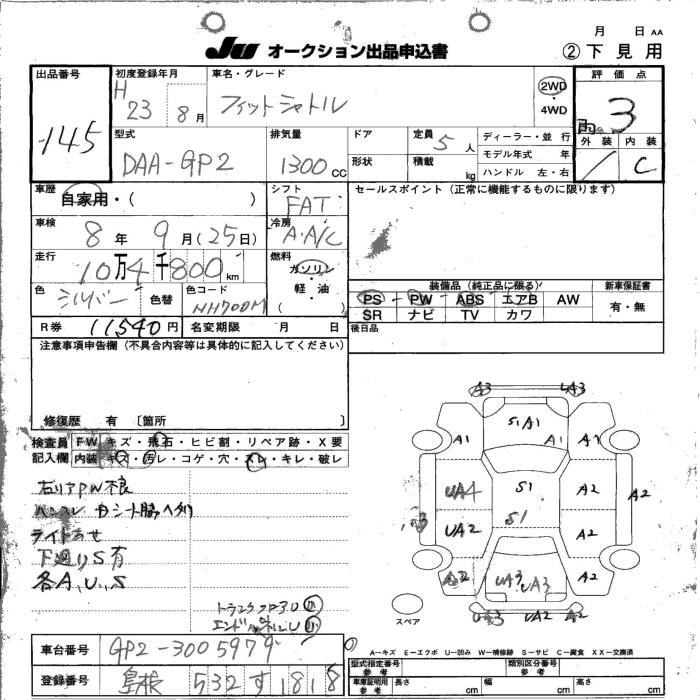 月 日 AA
JU オークション出品申込書 ②下見用
出品番号 初度登録年月 車名・グレード 評価点
H 23 8月 フィットシャトル 2WD 4WD 3
145 型式 排気量 ドア 定員 5 人 ディーラー・並行 外装 内装
DAA-GP2 1300 CC 形状 積載 kg モデル年式 年 C
ハンドル 左・右
車歴 自家用・( ) シフト FAT セールスポイント(正常に機能するものに限ります)
車検 8年 9月(25日) 冷房 A・A/C
走行 10万4千800km 燃料 ガソリン・軽油・( )
色 シルバー 色替 色コード NH700M 装備品(純正品に限る) 新車保証書
PS PW ABS エアB AW 有・無
SR ナビ TV カワ
R券 11540円 名変期限 月 日 後日品
注意事項申告欄(不具合内容等は具体的に記入してください)
修復歴 有 〔箇所 〕
検査員 FW キズ・飛石・ヒビ割・リペア跡・X要
記入欄 内装 キズ・汚レ・コゲ・穴・スレ・キレ・破レ
右リアPW不良
ハンスレ
ライトあせ
下廻りS有
各A、U、S
A3 UA3
S1 A1
A1 A1 A1
UA4 S1 A2 A2
UA2 S1 A2
A2 UA3 UA3 A2
UA3 UA2 A2
スペア
A－キズ E－エクボ U－凹み W－補修跡 S－サビ C－腐食 XX－交換済
車台番号 GP2-3005979
型式指定番号 参考 類別区分番号
登録番号 島根 532 す 1818
車庫証明用 参考 長さ cm 幅 cm 高さ cm